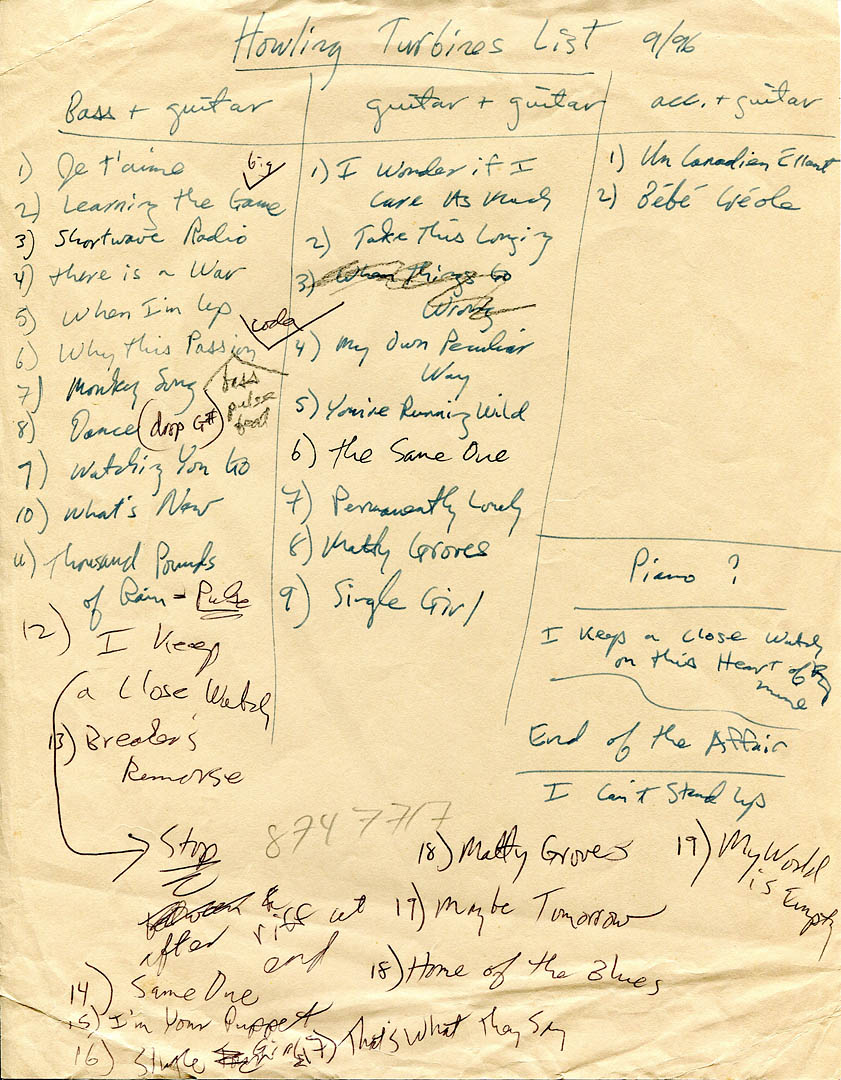 Howling Turbines List 9/96
Bass + guitar
1) Je t'aime
big
2) Learning the Game
3) Shortwave Radio
4) there is a War
5) When I'm Up
coda
6) Why this Passion
7) Monkey Song
bass
pulse
8) Dance (drop G#)
9) Watching You Go
10) What's New
11) Thousand Pounds
of Rain - Pulse
12) I Keep
a Close Watch
13) Breaker's
Remorse
Stop
& riff at
after end
14) Same One
15) I'm Your Puppet
16) Single Girl
guitar + guitar
1) I Wonder if I
Care As Much
2) Take This Longing
3) When things Go
Wrong
4) My Own Peculiar
Way
5) You're Running Wild
6) the Same One
7) Permanently Lonely
8) Matty Groves
9) Single Girl
acc. + guitar
1) Un Canadien Errant
2) Bébé Créole
Piano ?
I Keep a Close Watch
on this Heart of
mine
End of the Affair
I Can't Stand Up
8747717
18) Matty Groves
19) My World
is Empty
17) Maybe Tomorrow
18) Home of the Blues
17) That's What They Say